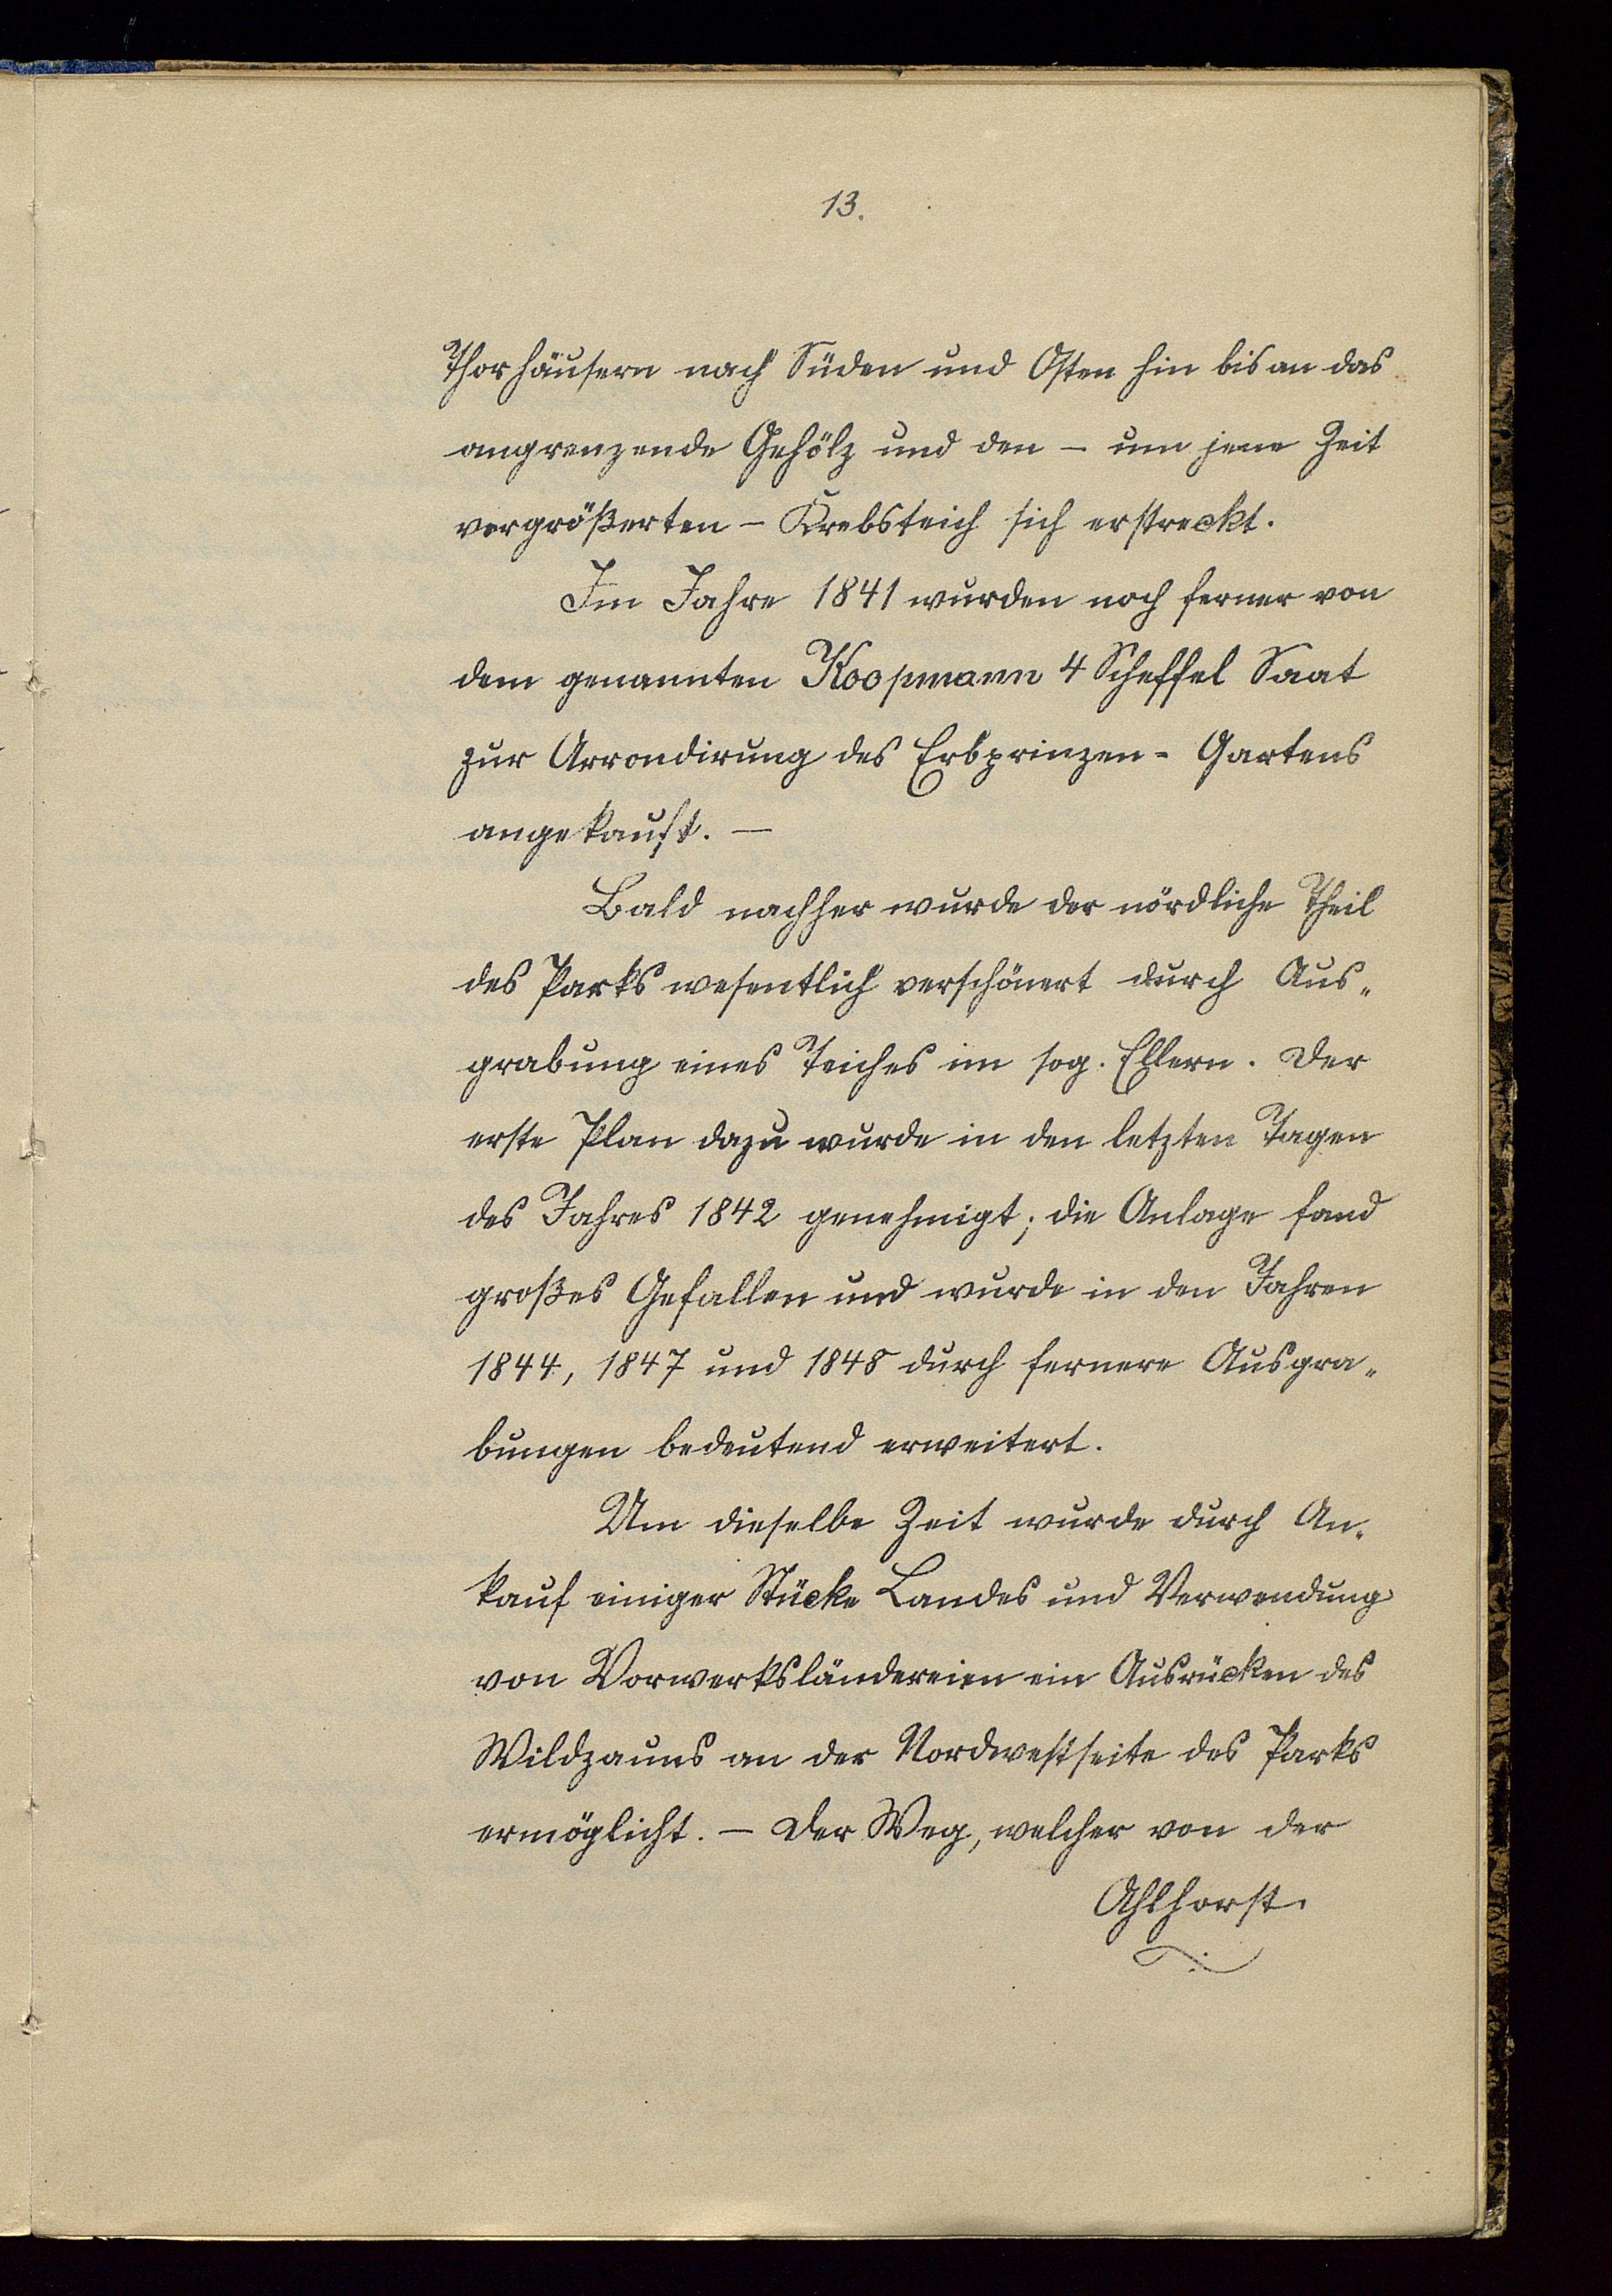 13.
Thorhäusern nach Süden und Osten hin bis an das
angrenzende Gehölz und den – um jene Zeit
vergrößerten – Krebsteich sich erstreckt.
Im Jahre 1841 wurden noch ferner von
dem genannten Koopmann 4 Scheffel Saat
zur Arrondirung des Erbprinzen-Gartens
angekauft. —
Bald nachher wurde der nördliche Theil
des Parks wesentlich verschönert durch Aus-
grabung eines Teiches im sog. Ellern. Der
erste Plan dazu wurde in den letzten Tagen
des Jahres 1842 genehmigt; die Anlage fand
großes Gefallen und wurde in den Jahren
1844, 1847 und 1848 durch fernere Ausgra-
bungen bedeutend erweitert.
Um dieselbe Zeit wurde durch An-
kauf einiger Stücke Landes und Verwendung
von Vorwerksländereien ein Ausrücken des
Wildzauns an der Nordwestseite des Parks
ermöglicht. — Der Weg, welcher von der
Ahlhorst.